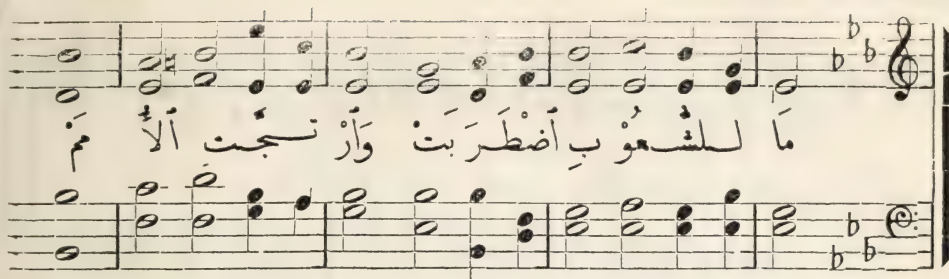 مَا لـلشُّـعُوْبِ ٱضْطَرَبَتْ وَٱرْتـجَّـتِ ٱلأُمَمْ